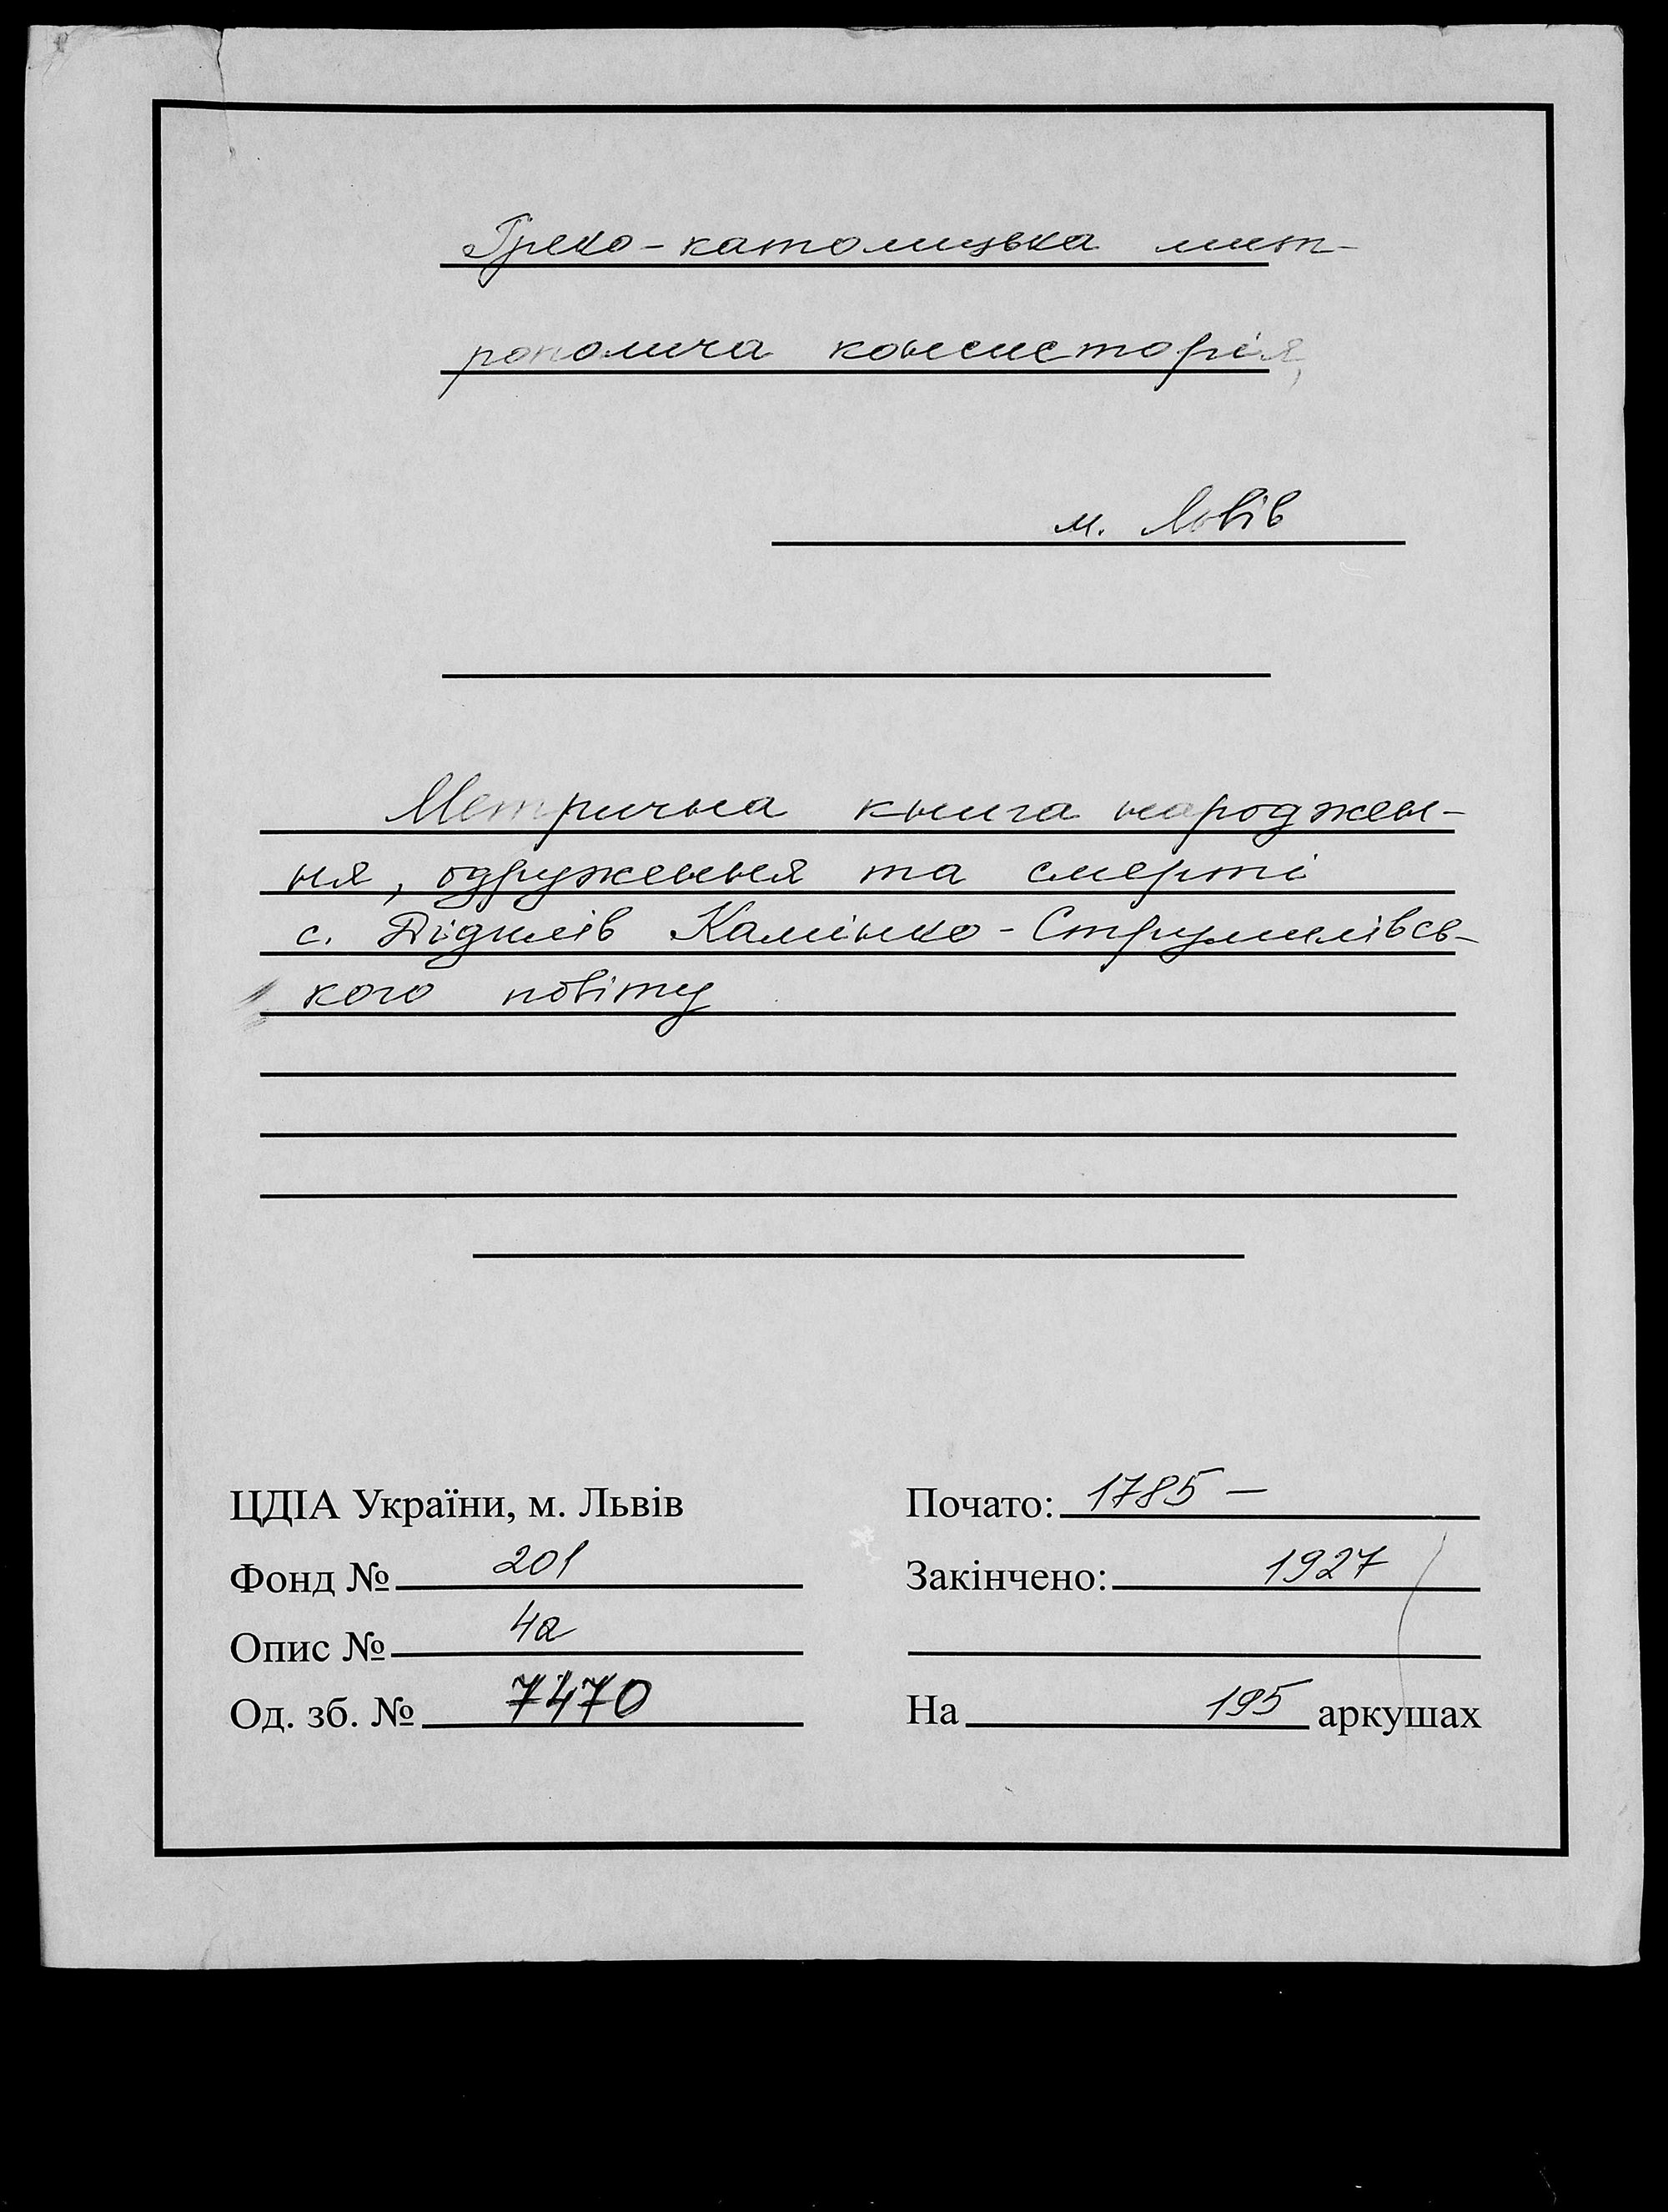 Греко-католицька мит-
рополича консисторія,
м. Львів
Метрична книга народжен-
ня, одруження та смерті
с. Дідилів Камінко-Струмилівсь-
кого повіту
ЦДІА України, м. Львів
Фонд № 201
Опис № 4а
Од. зб. № 7470
Почато: 1785 –
Закінчено: 1927
На 195 аркушах